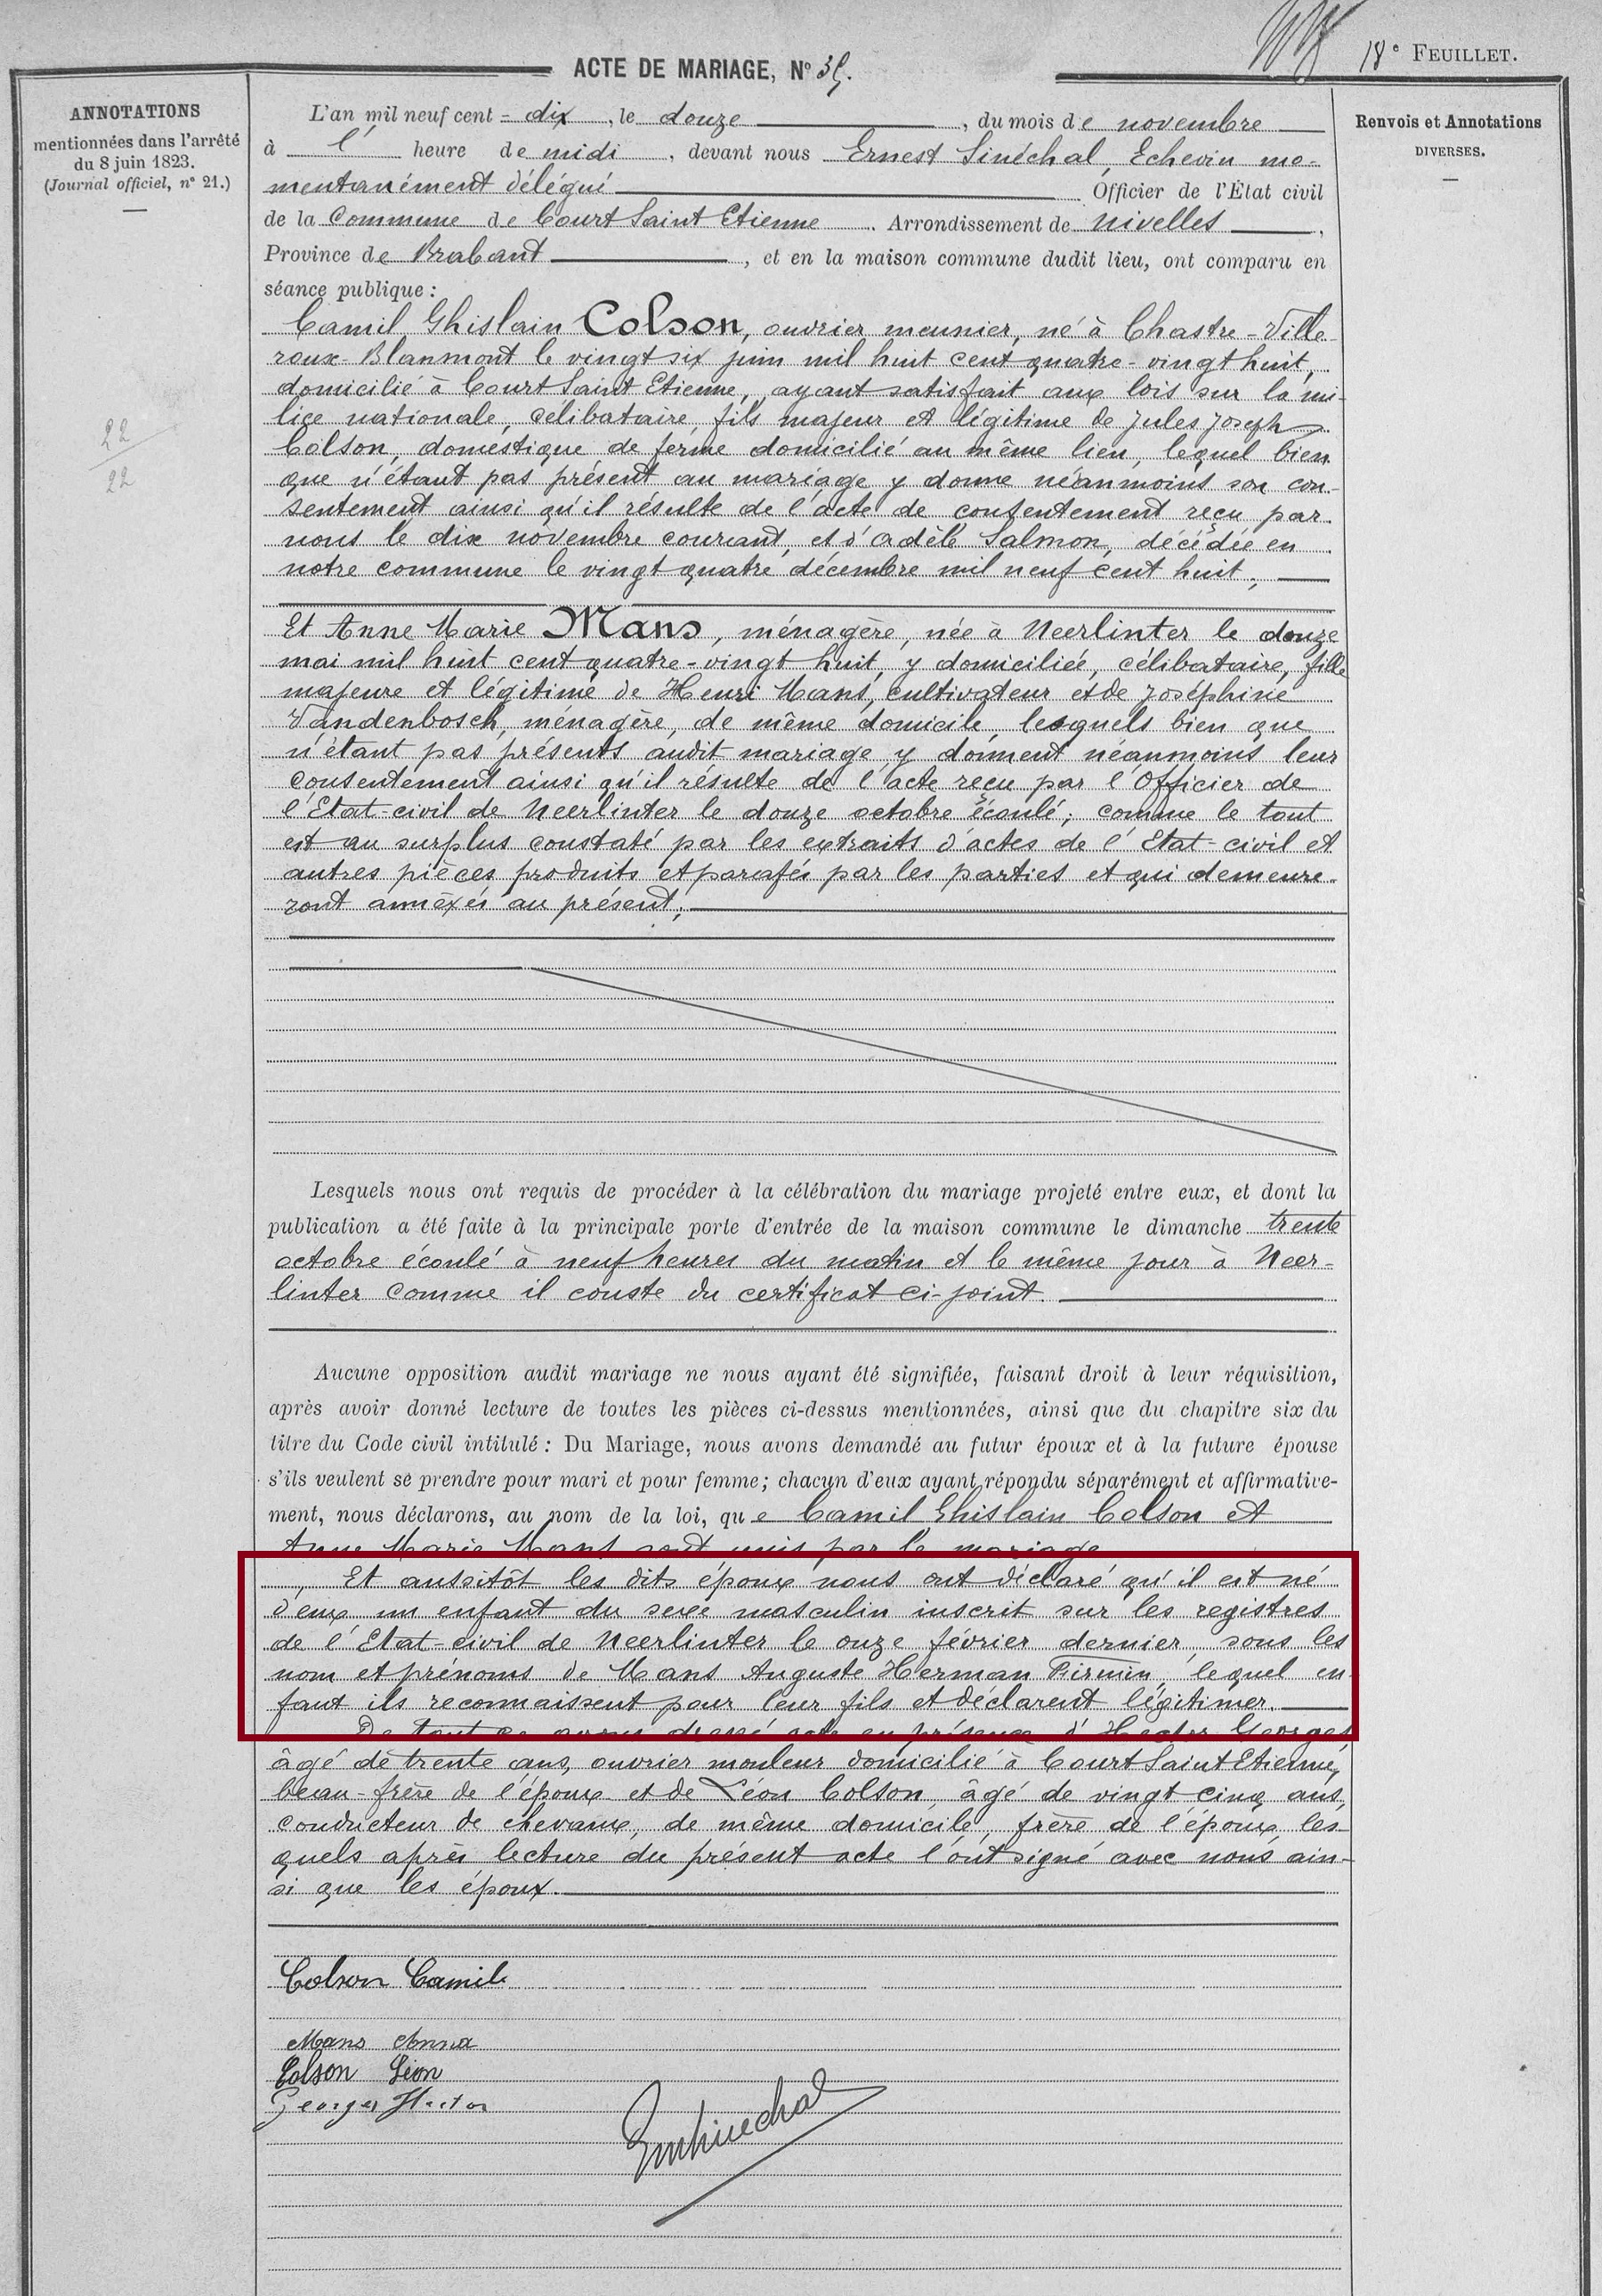 18e FEUILLET.
ACTE DE MARIAGE, No 35.
ANNOTATIONS
mentionnées dans l'arrêté
du 8 juin 1823.
(Journal officiel, no 21.)
Renvois et Annotations
DIVERSES.
L'an mil neuf cent = dix, le douze, du mois de novembre
à l' heure de midi, devant nous Ernest Sinéchal, Echevin mo-
mentanément délégué Officier de l'État civil
de la Commune de Court Saint Etienne. Arrondissement de Nivelles,
Province de Brabant, et en la maison commune dudit lieu, ont comparu en
séance publique :
Camil Ghislain Colson, ouvrier meunier, né à Chastre-Ville-
roux-Blanmont le vingt six juin mil huit cent quatre-vingt huit,
domicilié à Court Saint Etienne, ayant satisfait aux lois sur la mi-
lice nationale, célibataire, fils majeur et légitime de Jules Joseph
Colson, domestique de ferme domicilié au même lieu, lequel bien
que n'étant pas présent au mariage y donne néanmoins son con-
sentement ainsi qu'il résulte de l'acte de consentement reçu par
nous le dix novembre courant, et d'Adèle Salmon, décédée en
notre commune le vingt quatre décembre mil neuf cent huit ;
Et Anne Marie Mans, ménagère, née à Neerlinter le douze
mai mil huit cent quatre-vingt huit, y domiciliée, célibataire, fille
majeure et légitime de Henri Mans, cultivateur et de Joséphine
Vandenbosch, ménagère, de même domicile, lesquels bien que
n'étant pas présents audit mariage y donnent néanmoins leur
consentement ainsi qu'il résulte de l'acte reçu par l'Officier de
l'Etat-civil de Neerlinter le douze octobre écoulé ; comme le tout
est au surplus constaté par les extraits d'actes de l'Etat-civil et
autres pièces produits et parafés par les parties et qui demeure-
ront annexés au présent ;
22
22
Lesquels nous ont requis de procéder à la célébration du mariage projeté entre eux, et dont la
publication a été faite à la principale porte d'entrée de la maison commune le dimanche trente
octobre écoulé à neuf heures du matin et le même jour à Neer-
linter comme il conste du certificat ci-joint.
Aucune opposition audit mariage ne nous ayant été signifiée, faisant droit à leur réquisition,
après avoir donné lecture de toutes les pièces ci-dessus mentionnées, ainsi que du chapitre six du
titre du Code civil intitulé : Du Mariage, nous avons demandé au futur époux et à la future épouse
s'ils veulent se prendre pour mari et pour femme ; chacun d'eux ayant répondu séparément et affirmative-
ment, nous déclarons, au nom de la loi, que Camil Ghislain Colson et
Anne Marie Mans sont unis par le mariage
Et aussitôt les dits époux nous ont déclaré qu'il est né
d'eux un enfant du sexe masculin inscrit sur les registres
de l'Etat-civil de Neerlinter le onze février dernier, sous les
nom et prénoms de Mans Auguste Herman Firmin, lequel en-
fant ils reconnaissent pour leur fils et déclarent légitimer.
De tout ce avons dressé acte en présence d'Hector Georges,
âgé de trente ans, ouvrier mouleur domicilié à Court Saint Etienne,
beau-frère de l'époux et de Léon Colson, âgé de vingt cinq ans,
conducteur de chevaux, de même domicile, frère de l'époux, les-
quels après lecture du présent acte l'ont signé avec nous ain-
si que les époux.
Colson Camile
Mans Anna
Colson Léon
Georges Hector